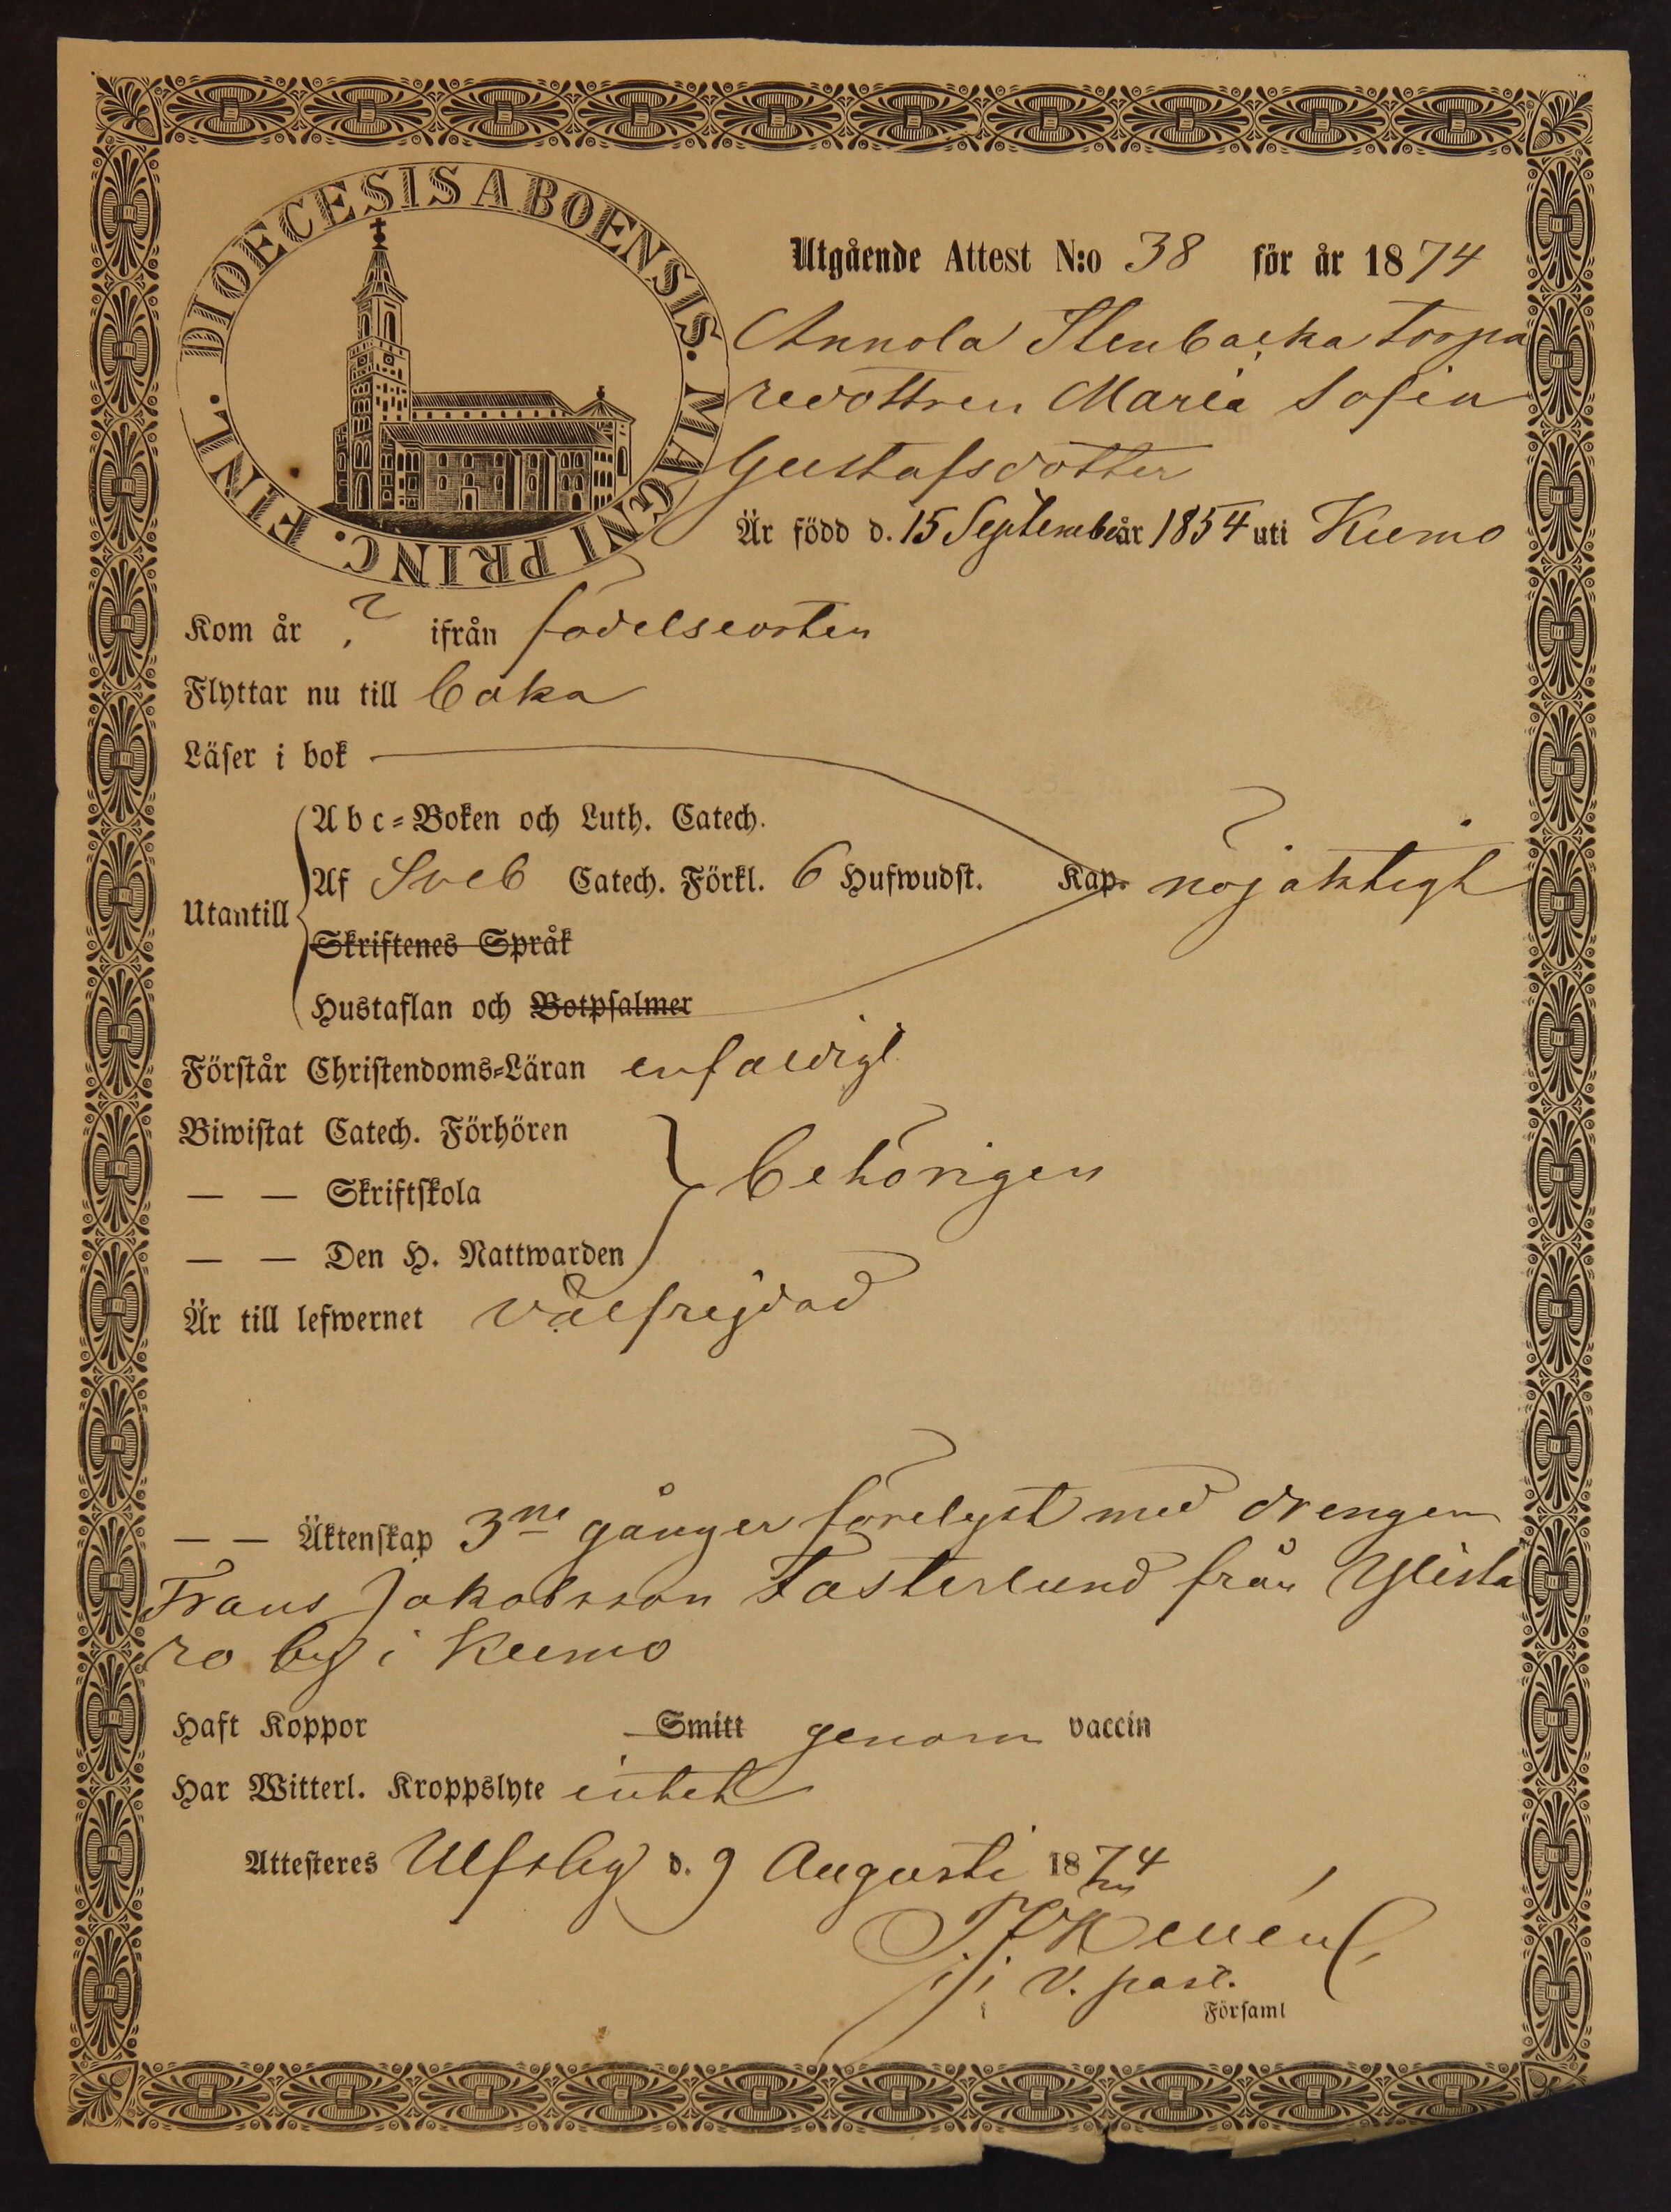 DIOECESIS ABOENSIS. MAGNI PRINC. FINL.
Utgående Attest N:o 38 för år 1874
Annola Stenbacka torpa
redottren Maria Sofia
Gustafsdotter
Är född d. 15 September år 1854 uti Kumo
Kom år ? ifrån födelseorten
Flyttar nu till baka
Läser i bok
Utantill
Abc=Boken och Luth. Catech.
Af Sveb Catech. Förkl. 6 Hufwudst. Kap. nöjaktigt
Skriftenes Språk
Hustaflan och Botpsalmer
Förstår Christendoms=Läran enfaldigt
Biwistat Catech. Förhören
— — Skriftskola behörigen
— — Den H. Nattwarden
Är till lefwernet välfrejdad
— — Äktenskap 3ne gånger förelyst med drengen
Frans Jakobsson Fasterlund från Ylista
ro by i Kumo
Haft Koppor Smitt genom vaccin
Har Witterl. Kroppslyte intet
Attesteres Ulfsby d. 9 Augusti 1874
v. past.
Församl